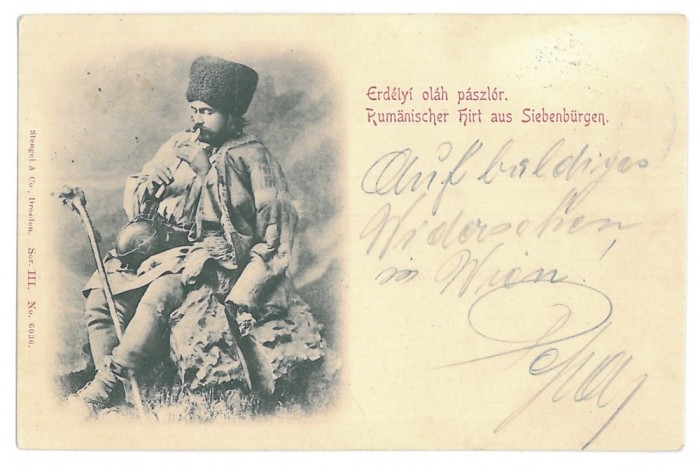 Erdélyi oláh pászlór.
Rumänischer Hirt aus Siebenbürgen.
Auf baldiges
Widersehen
in Wien!
Stengel & Co., Dresden. Ser. III. No. 6036.